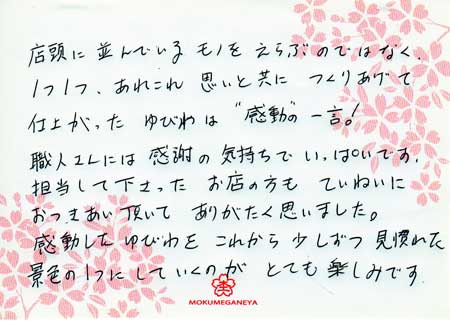 店頭に並んでいるモノをえらぶのではなく、
1つ1つ、あれこれ 思いと共に つくりあげて
仕上がった ゆびわは "感動"の一言。!
職人さんには 感謝の気持ちで いっぱいです。
担当して下さった お店の方も ていねいに
おつきあい頂いて ありがたく思いました。
感動したゆびわを これから 少しずつ 見慣れた
景色の1つにしていくのが とても 楽しみです。
MOKUMEGANEYA